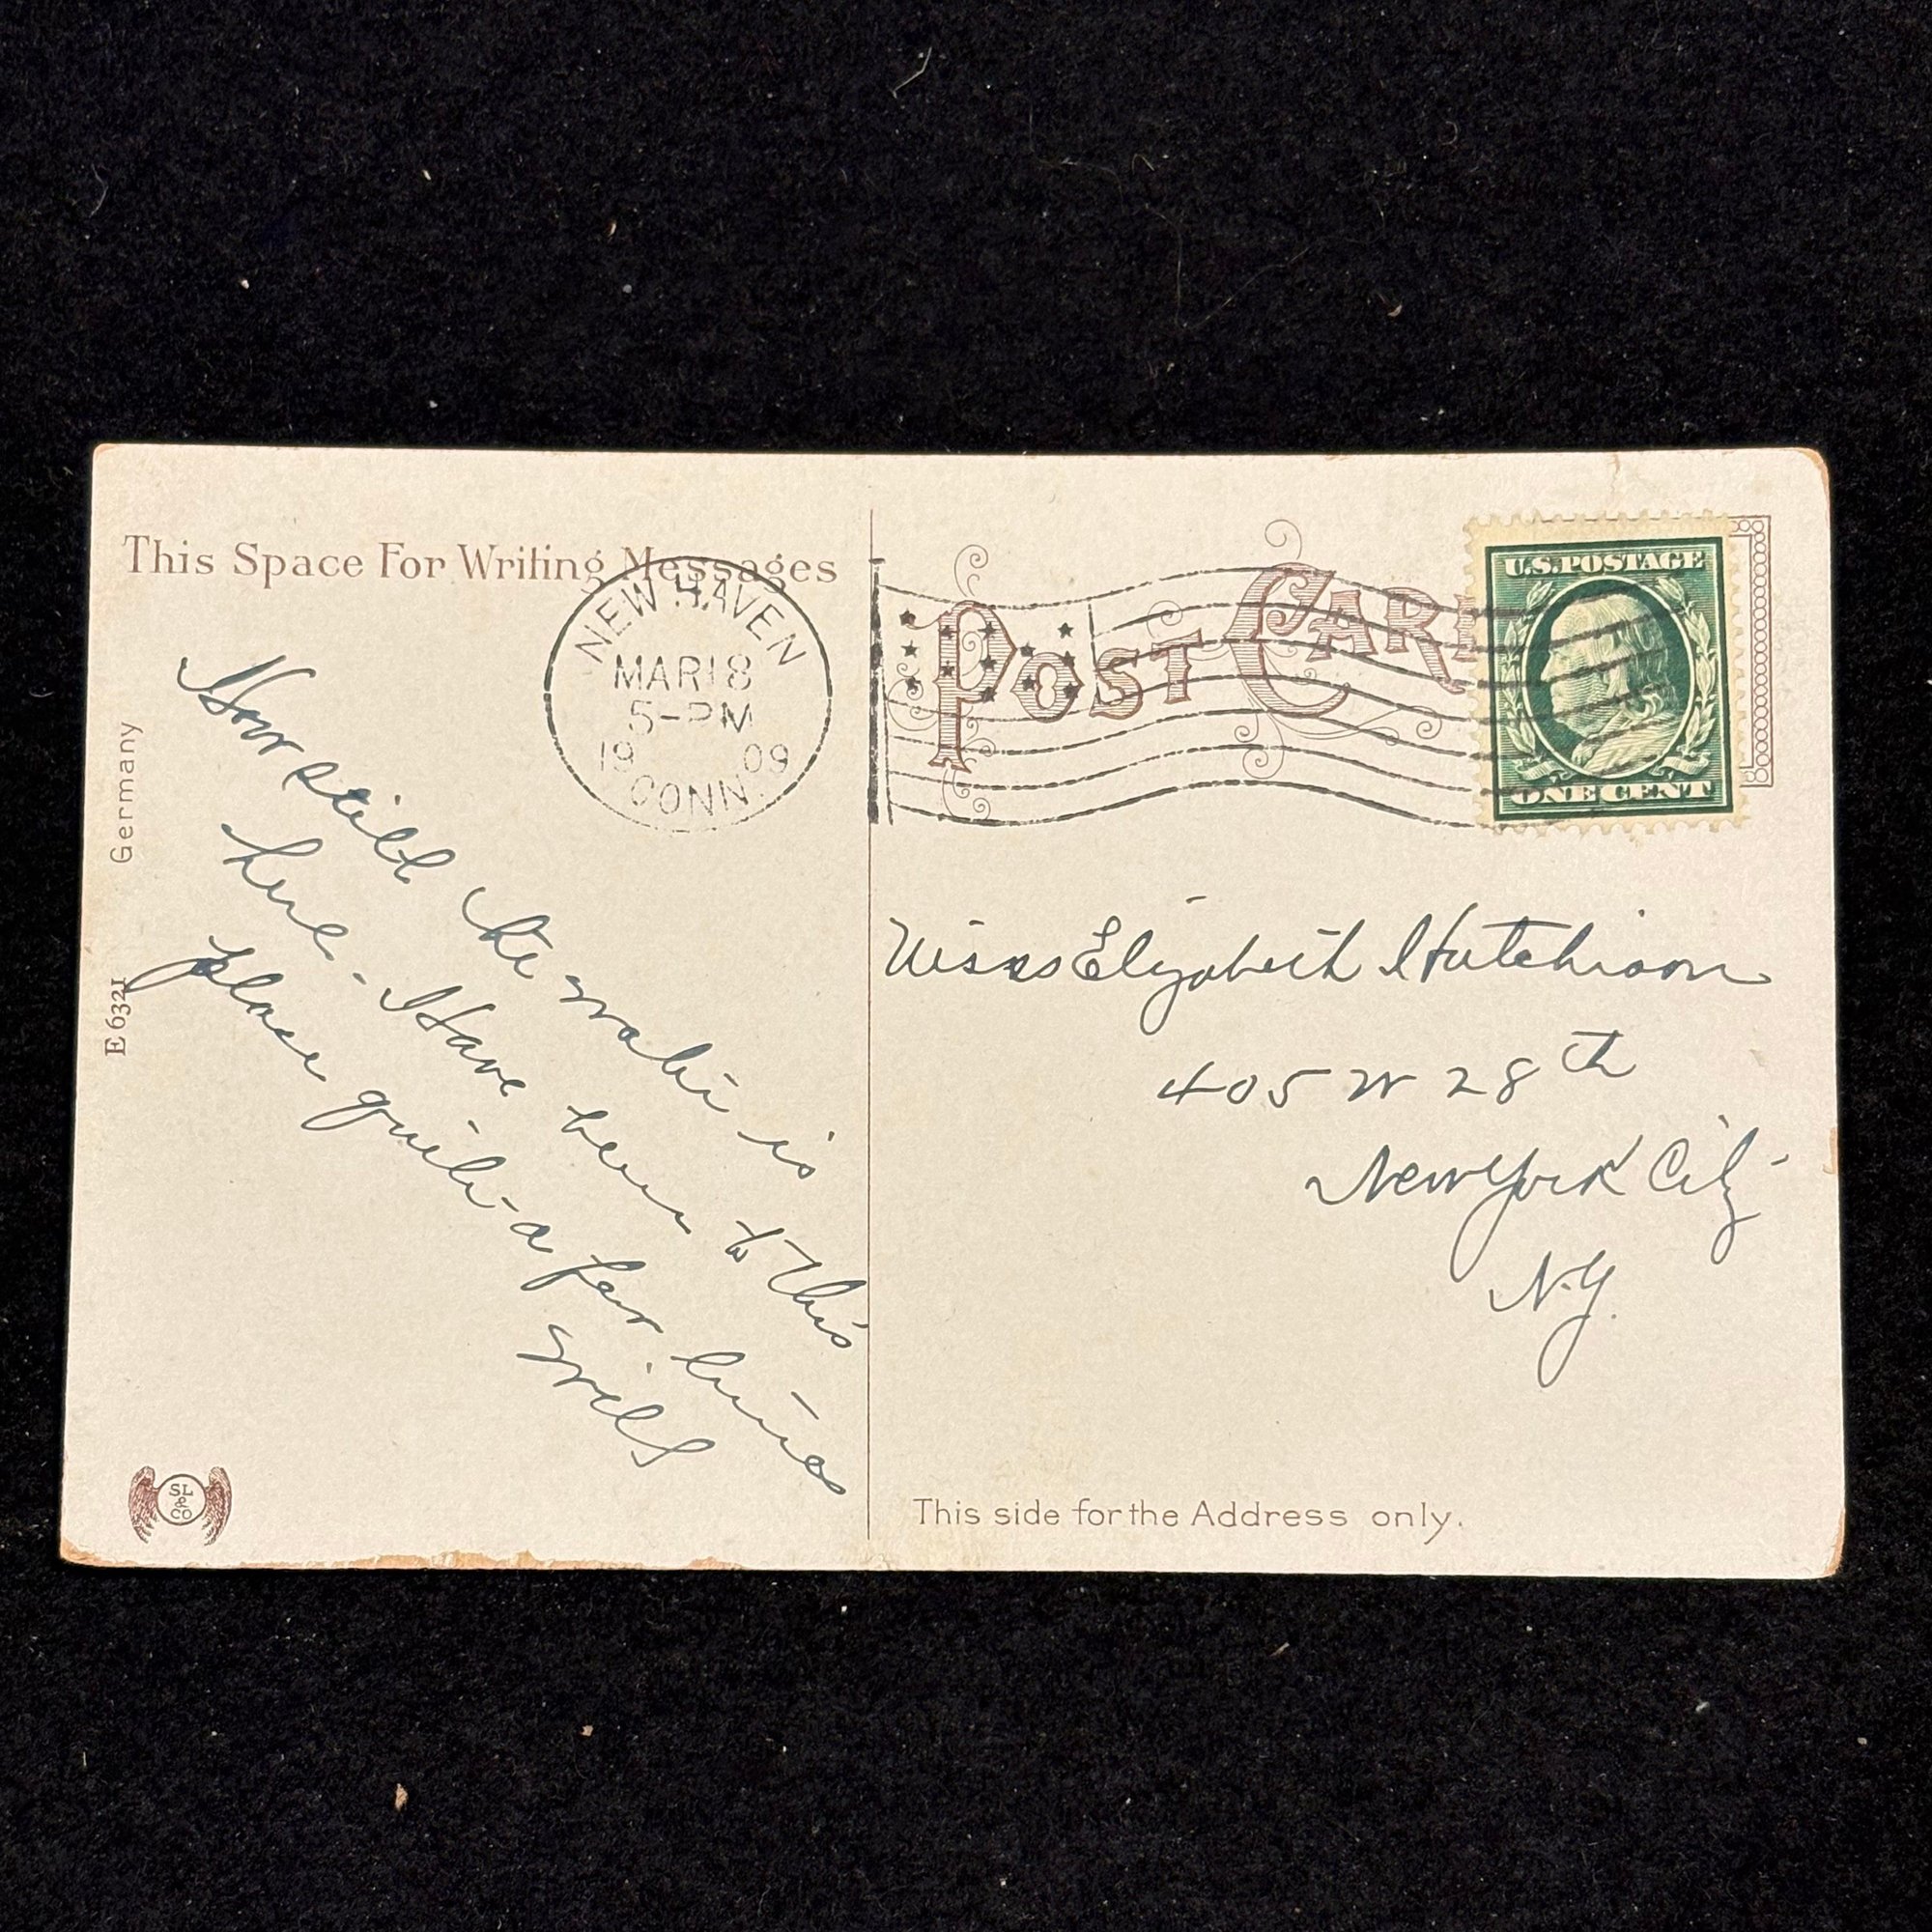 This Space For Writing Messages
NEW HAVEN
MAR 18
5-PM
1909
CONN.
POST CARD
U.S. POSTAGE
ONE CENT
Germany
E 6321
How still the water is
here - Have been to this
place quite a few times
Will
Miss Elizabeth Hutchison
405 W 28th
New York City
N.Y.
SL
&
CO
This side for the Address only.